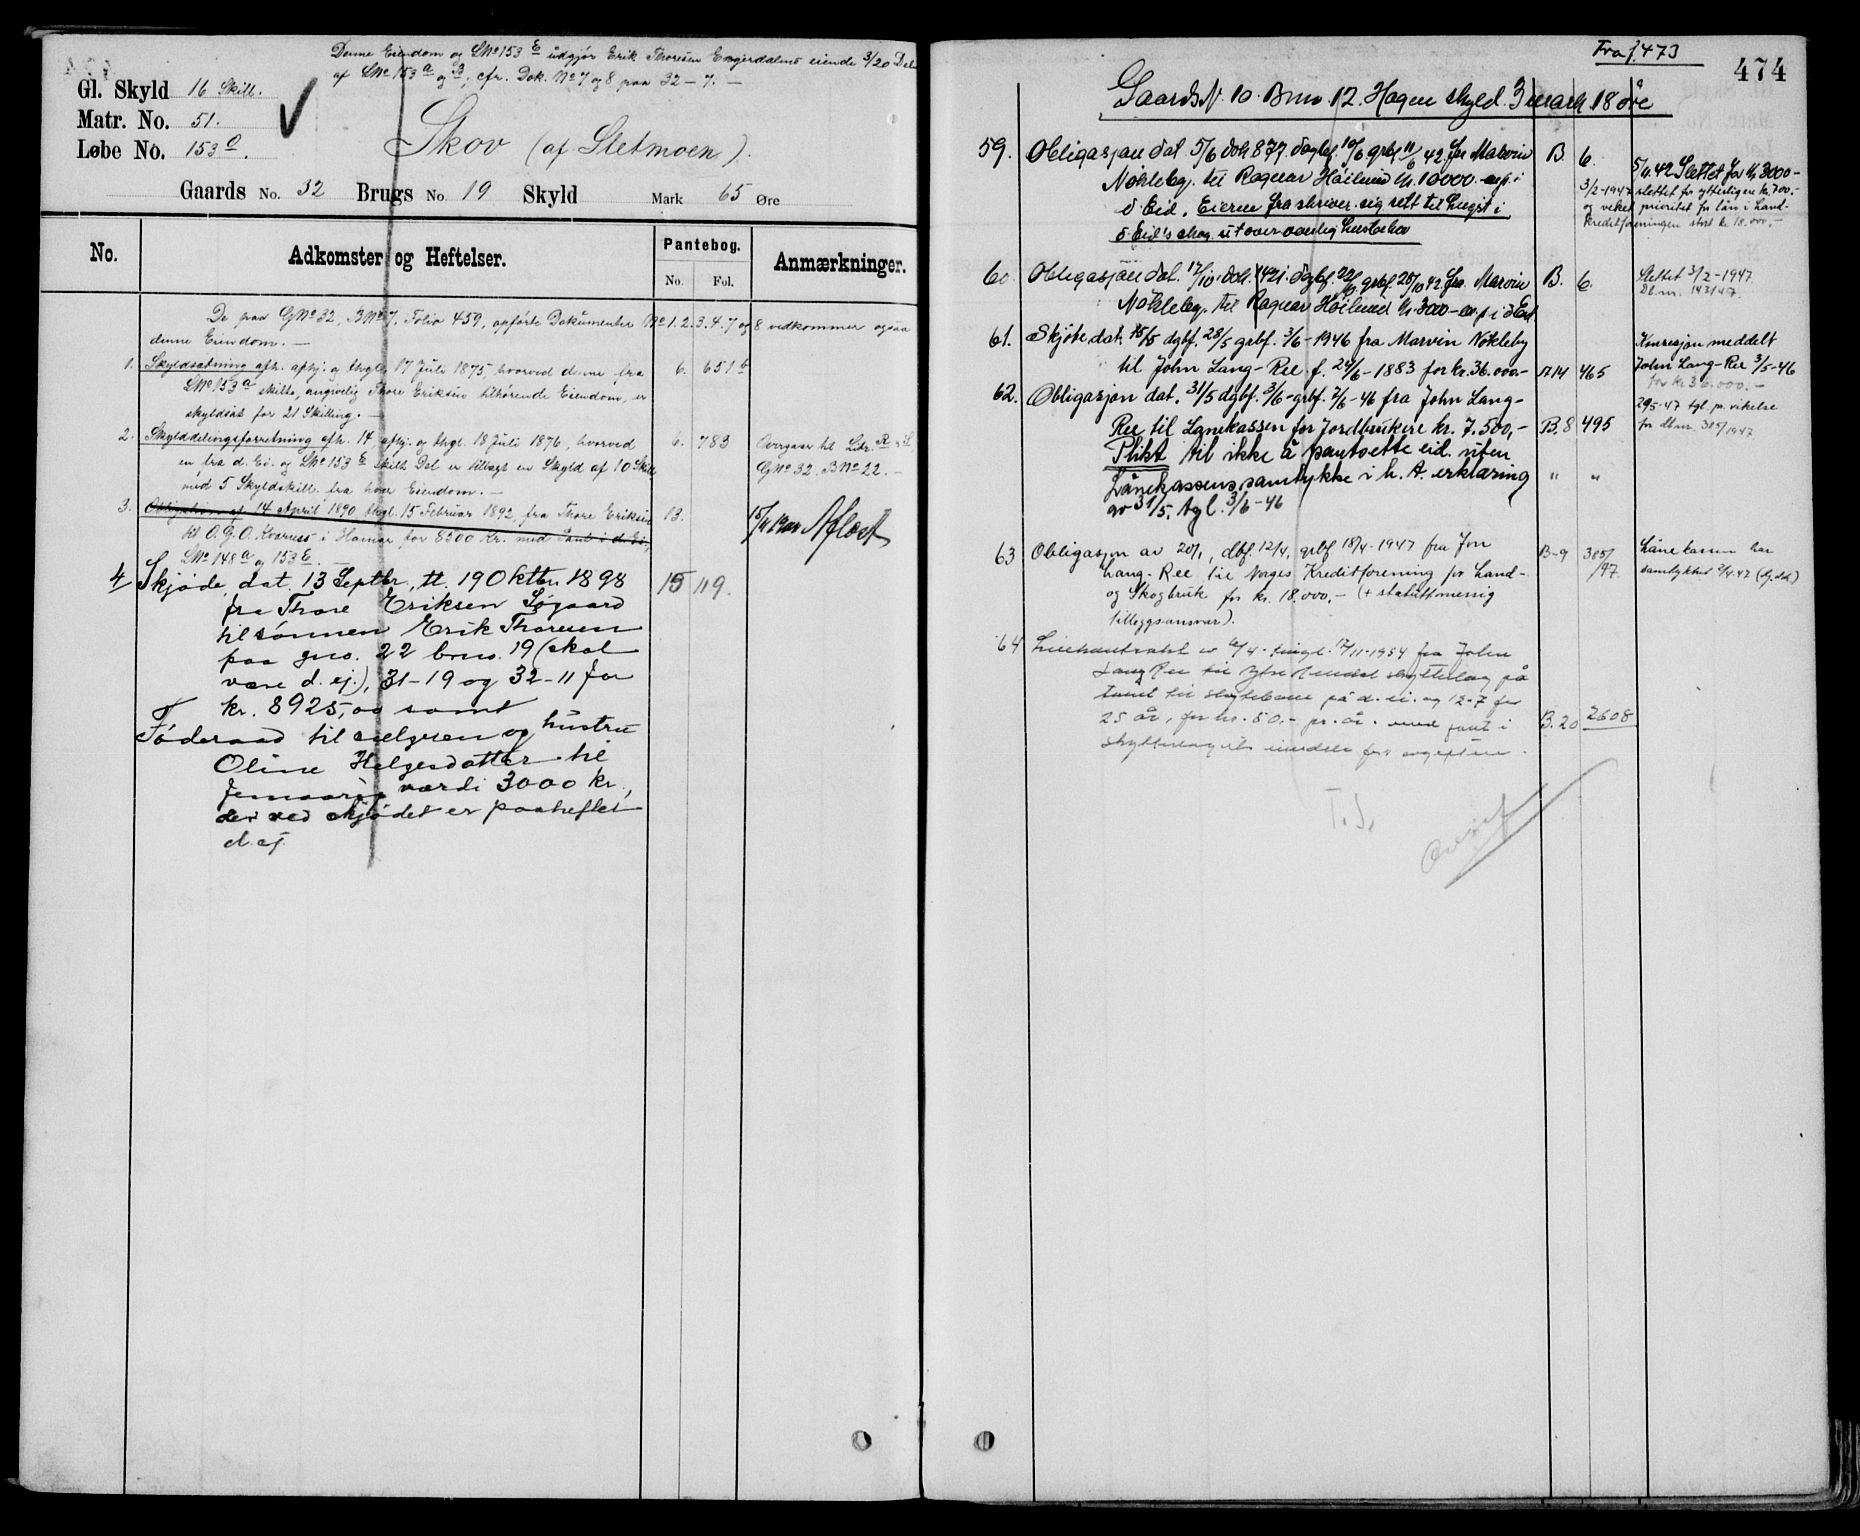 Denne Eiendom og LNo 153 b udgjør Erik Thoresen Engerdalens eiende 3/20 Del
af LNo 153 a og , cfr. Dok. No 7 og 8 paa 32 – 7. –
Gl. Skyld 16 Skill.
Matr. No. 51.
Løbe No. 153
Skov (af Sletmoen).
Gaards No. 32 Brugs No. 19 Skyld Mark 65 Øre
No. Adkomster og Heftelser. Pantebog. No. Fol. Anmærkninger.
De paa GNo 32, BNo 7, Folio 459, opførte Dokumenter No 1. 2. 3. 4. 7 og 8 vedkommer ogsaa
denne Eiendom. –
1. Skyldsætning afh. afhj. og thgl. 17 Juli 1875, hvorved denne fra 6. 651 b
LNo 153 a skilte, angivelig Thore Eriksen tilhørende Eiendom, er
skyldsat for 21 Skilling. –
2. Skylddelingsforretning afh. 14, afhj. og thgl. 18 Juli 1876, hvorved 6. 783 Overgaar til Litr.
en fra d. Ei. og LNo 153 b skilt Del er tillagt en Skyld af 10 Skill. GNo 32, BNo 22. –
med 5 Skyldskill. fra hver Eiendom. –
3. Obligation af 14 April 1890, thgl. 15 Februar 1892, fra Thore Eriksen 13. Aflæst
til O. G. O. i Hamar for 8500 Kr. med Pant i d. Ei.,
LNo 148 a og 153 b. –
4 Skjøde, dat. 13 Septbr., tl. 19 Oktbr. 1898 15 119.
fra Thore Eriksen Søgaard
til sønnen Erik Thoresen
paa gno. 22 bno. 19 (skal
være d. ej.), 31–19 og 32–11 for
kr. 8925,00 samt
Føderaad til sælgeren og hustru
Oline Helgesdatter til
femaarig værdi 3000 kr.,
der ved skjødet er paaheftet
d. ej.
Fra f. 473
474
GaardsN. 10. Bno 12 Hagen skyld. 3 mark 18 øre
59. Obligasjon dat 5/6 dok 877. dagbf. 10/6 grbf 11/6 42 fra Marvin B. 6.
Nøkleby. til Ragnar Høilund kr. 10000.– i
d. Eid. Eieren fraskriver sig rett til hugst i
d. Eid's skog. ut over vanlig husbehov
5/11.42 Slettet for kr 3000 –
3/2–1947 slettet for ytterligere kr. 700,–
og veket prioritet for lån i Land-
kreditforeningen stort kr 18.000,–
60 Obligasjon dat. 17/10 dok. 1421. dagbf. 22/10 grbf. 25/10 42 fra Marvin B. 6.
Nøkleby. til Ragnar Høilund kr. 300 – i d Eid
Slettet 3/2–1947
Db.nr. 143/47.
61. Skjøte dat. 15/5 dgbf. 28/5 grbf. 3/6–1946 fra Marvin Nøkleby
til John Lang–Ree f. 29/6–1883 for kr. 36.000.– B14 465
Konsesjon meddelt
John Lang–Ree 3/5–46
for kr 36.000.–
62. Obligasjon dat. 31/5 dgbf. 3/6–grbf. 7/6–46 fra John Lang–
Ree til Lånekassen for Jordbrukere kr. 7.500,– B. 8 495
29/5–47 tgl. pr. vikelse
for dbnr. 385/1947
Plikt til ikke å pantsette eid. uten
Lånekassens samtykke i h. t. erklæring " "
av 31/5. tgl. 3/6–46
63 Obligasjon av 20/1, dbf. 12/4, grbf. 18/4–1947 fra Jon B–9 385/47
Lang–Ree til Norges Kreditforening for Land-
og Skogbruk for kr. 18.000,– (+ statuttmessig
tilleggsansvar).
Lånekassen har
samtykket
64 Leiekontrakt av 6/4–tingl. 17/11–1954 fra John
Lang Ree til Ytre Rendal skytterlag på
tomt til skytebane på d. ei. og 12–7 for
25 år, for kr. 50.– pr. år. med pant i B. 20 2608
skytterlagets eiendeler for avgiften.
T.S.